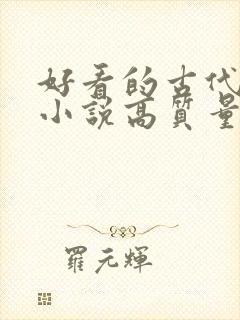 好看的古代
小说高質量
羅元輝